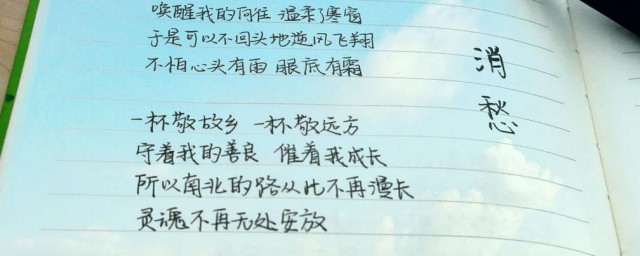 唤醒我的向往 温柔了寒窗
于是可以不回头地逆风飞翔
不怕心头有雨 眼底有霜
一杯敬故乡 一杯敬远方
守着我的善良 催着我成长
所以南北的路从此不再漫长
灵魂不再无处安放
消愁